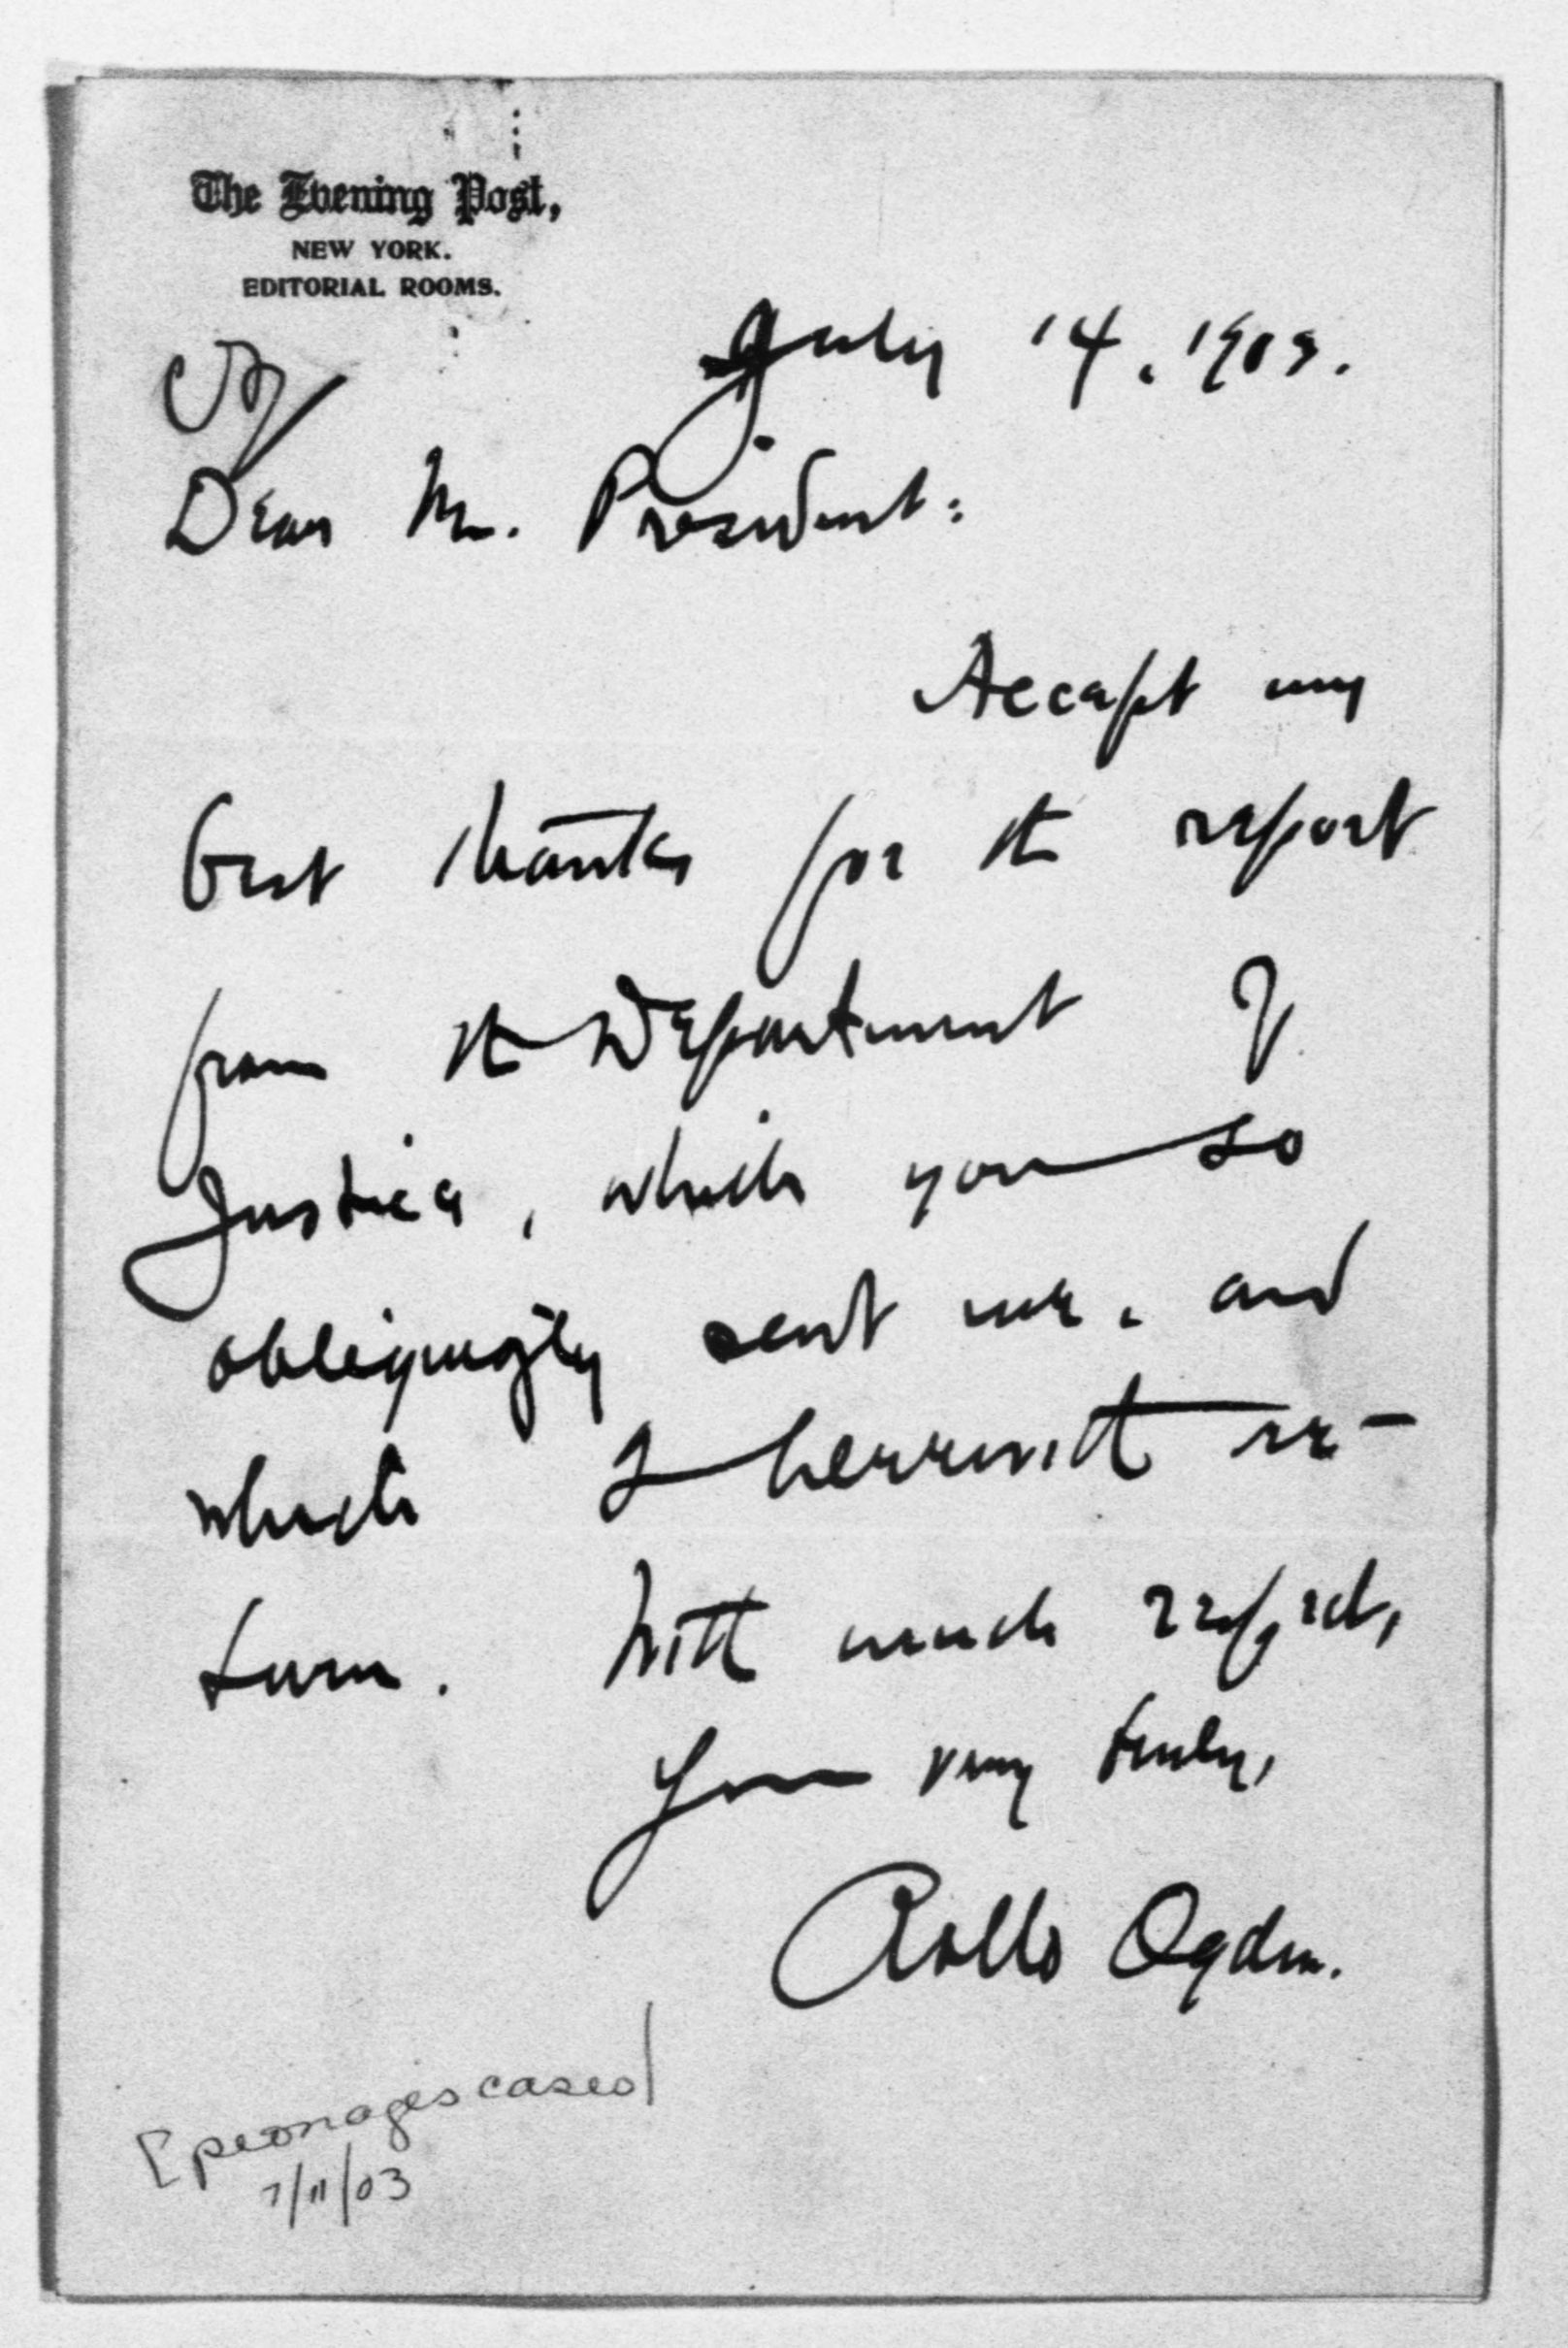 The Evening Post,
NEW YORK.
EDITORIAL ROOMS.
July 14, 1903.
Dear Mr. President:
Accept my
best thanks for the report
from the Department of
Justice, which you so
obligingly sent me, and
which I herewith re-
turn. With much respect,
Yours very truly,
Rollo Ogden.
[peonages cases]
7/11/03